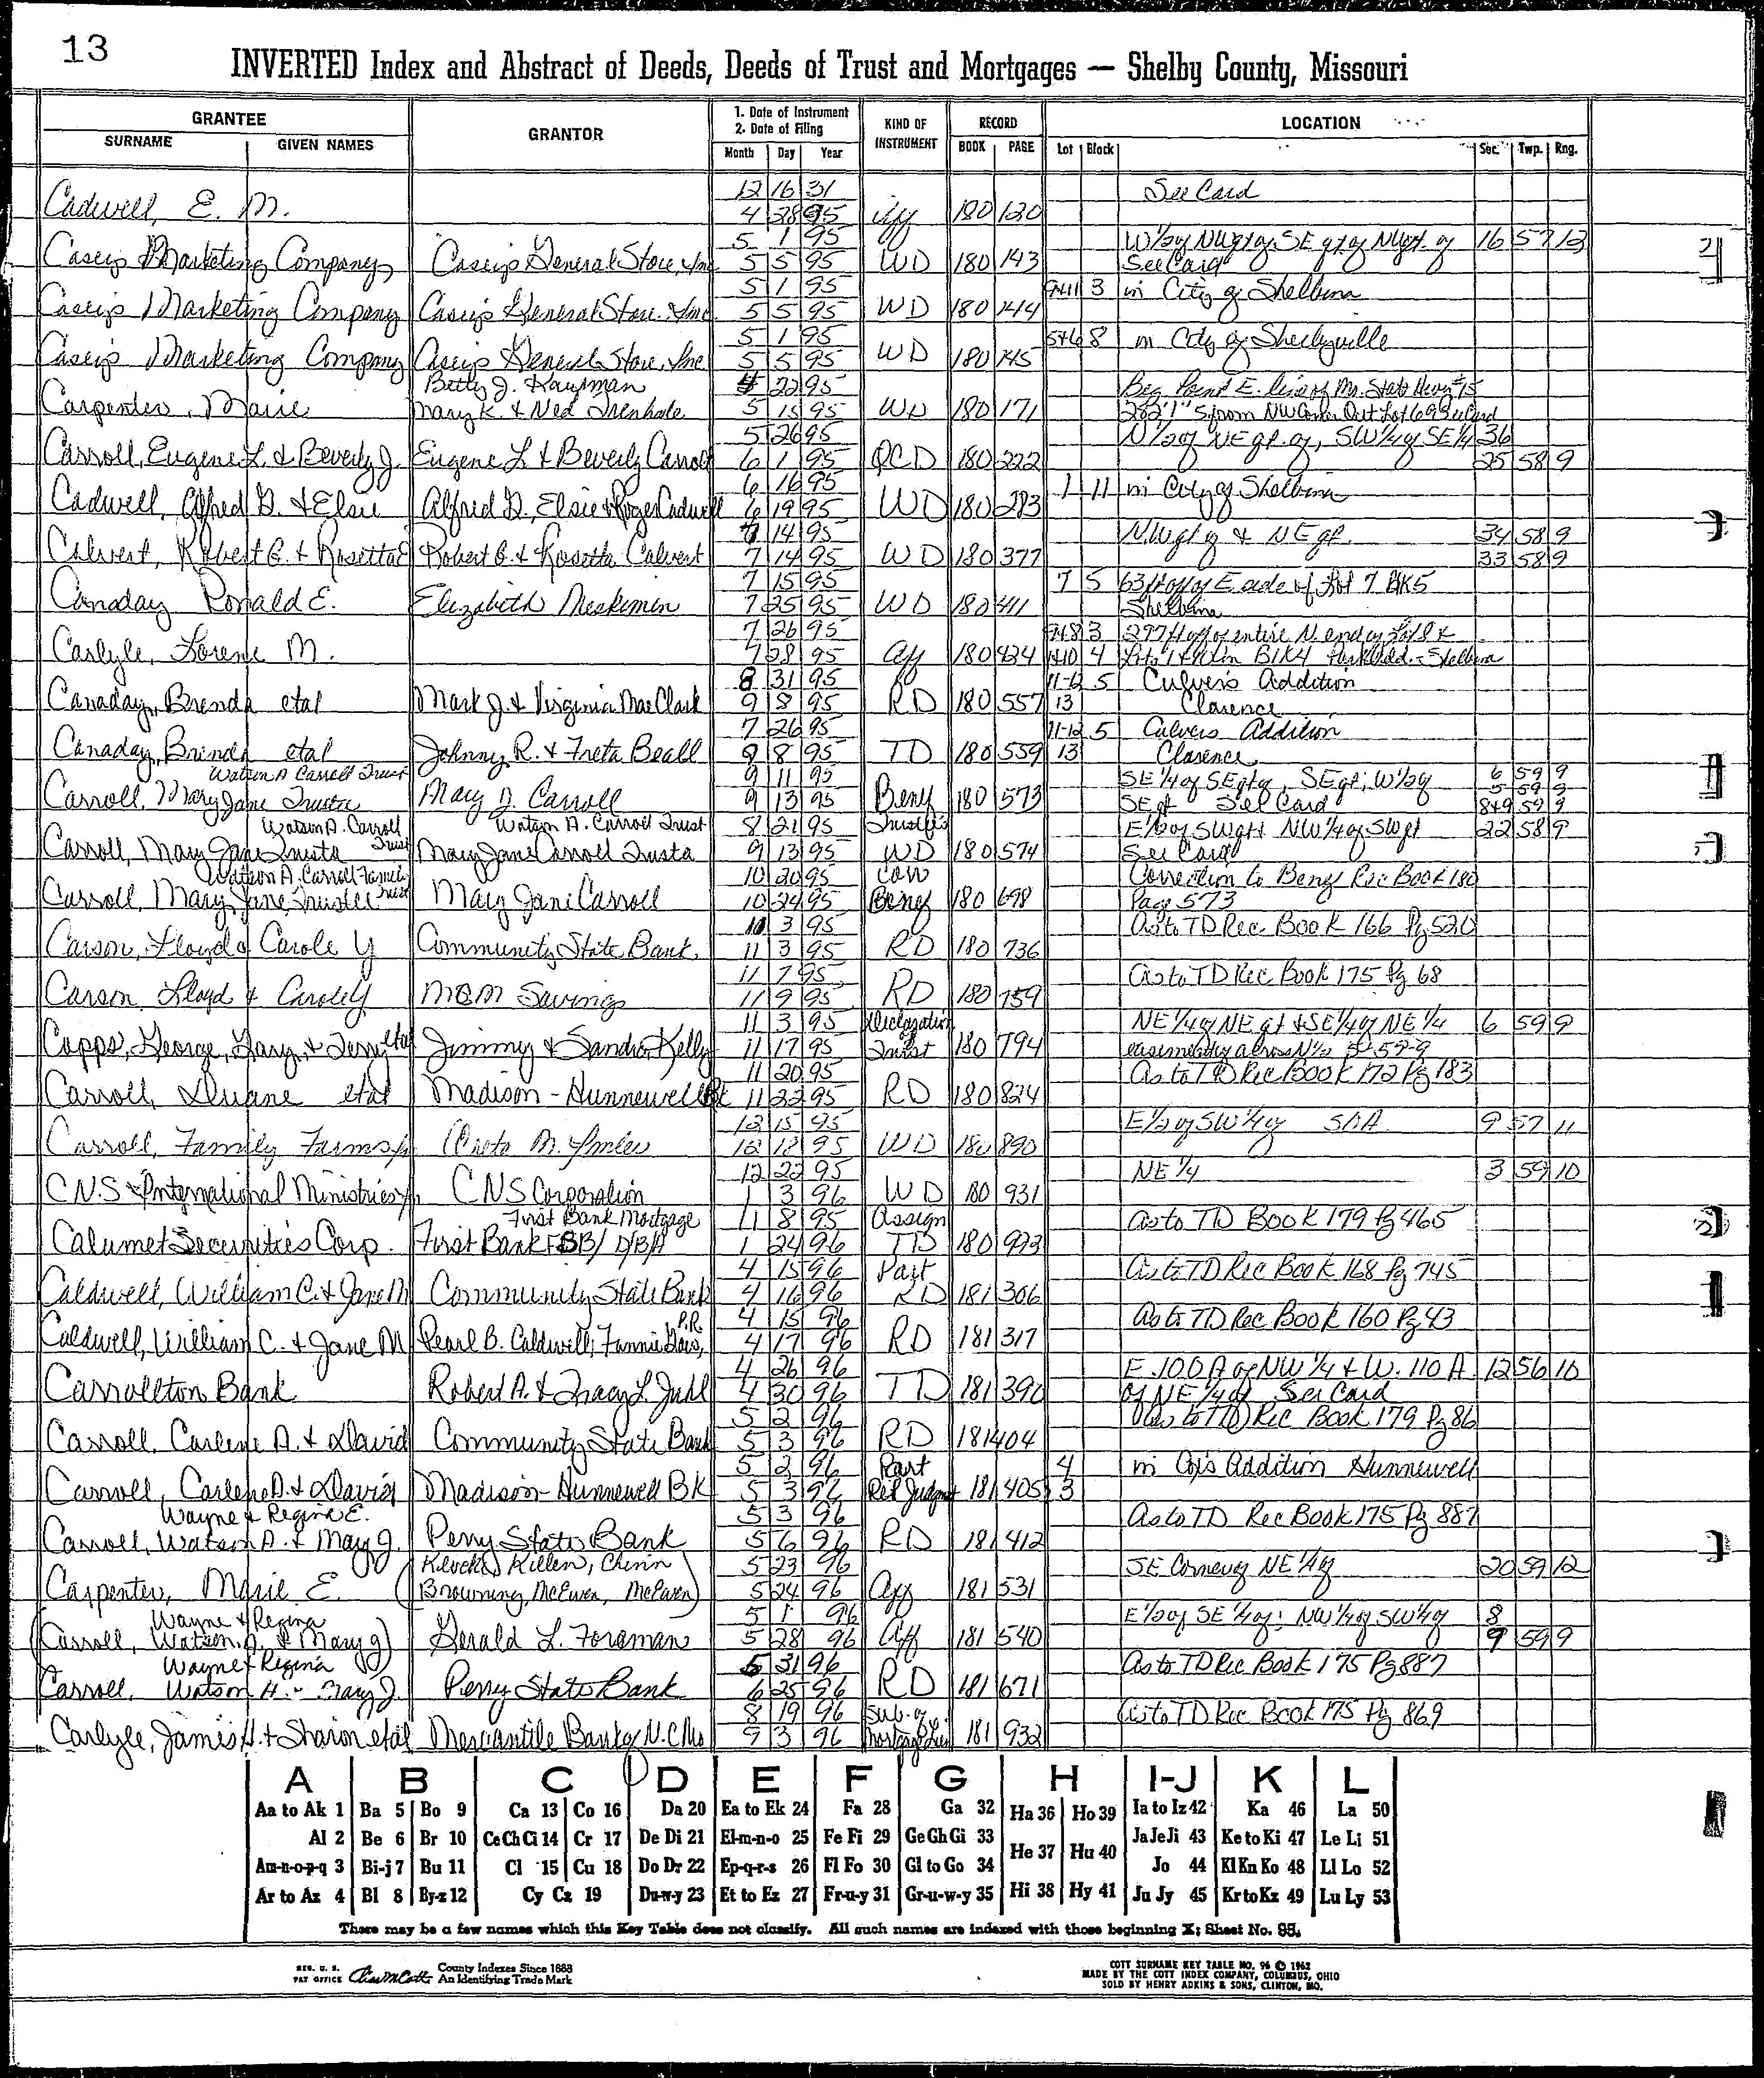 13
INVERTED Index and Abstract of Deeds, Deeds of Trust and Mortgages — Shelby County, Missouri
GRANTEE GRANTOR 1. Date of Instrument 2. Date of Filing KIND OF INSTRUMENT RECORD LOCATION
SURNAME GIVEN NAMES Month Day Year BOOK PAGE Lot Block Sec. Twp. Rng.
12 16 31 See Card
Cadwell, E. M. 4 28 95 Aff 180 120
5 1 95 W 1/2 of NW qt of SE qt of NW qt of 16 57 12
Caseys Marketing Company Caseys General Store, Inc 5 5 95 WD 180 143 See Card
5 1 95 3 in City of Shelbina
Caseys Marketing Company Caseys General Store, Inc 5 5 95 WD 180 144
5 1 95 5+6 8 in City of Shelbyville
Caseys Marketing Company Caseys General Store, Inc 5 5 95 WD 180 145
Betty J. Kaufman 4 22 95 Beg Point E. line of Mo. State Hwy #15
Carpenter, Marie Mary K. & Ned 5 15 95 WD 180 171 282'1" S from NW Corner Out Lot 69 See Card
5 26 95 N 1/2 of NE qt. of, SW 1/4 of SE 1/4 36
Carroll, Eugene L. & Beverly J. Eugene L & Beverly Carroll 6 1 95 QCD 180 222 25 58 9
6 16 95 1 11 in City of Shelbina
Cadwell, Alfred D. & Elsie Alfred D., Elsie & Roger Cadwell 6 19 95 WD 180 283
7 14 95 NW qt of & NE qt. 34 58 9
Calvert, Robert G. & Rosetta Robert G. & Rosetta Calvert 7 14 95 WD 180 377 33 58 9
7 15 95 7 5 63 ft off of E side of Lot 7 BK5
Canaday Ronald E. Elizabeth Meskimen 7 25 95 WD 180 411 Shelbina
7 26 95 3 297 ft off of entire N end of
Carlyle, Lorene M. 7 28 95 Aff 180 424 4 Blk 4 Park Add. - Shelbina
8 31 95 11-12 5 Culver's Addition
Canaday, Brenda etal Mark J. & Virginia Mae Clark 9 8 95 RD 180 557 13 Clarence
7 26 95 11-12 5 Culvers Addition
Canaday, Brenda etal Johnny R. & Freta Beall 9 8 95 TD 180 559 13 Clarence
Watson A Carroll Trust 9 11 95 SE 1/4 of SE qt of, SE qt; W 1/2 of 6 59 9
5 59 9
Carroll, Mary Jane Trustee Mary J. Carroll 9 13 95 Benef 180 573 SE qt See Card 8+9 59 9
Watson A. Carroll Trust Watson A. Carroll Trust 8 21 95 Trustee's E 1/2 of SW qt NW 1/4 of SW qt 22 58 9
Carroll, Mary Jane Trustee Mary Jane Carroll Trustee 9 13 95 WD 180 574 See Card
Watson A. Carroll Family Trust 10 20 95 Corr Correction to Benef Rec Book 180
Carroll, Mary Jane, Trustee Mary Jane Carroll 10 24 95 Benef 180 698 Page 573
11 3 95 As to TD Rec Book 166 Pg 520
Carson, Floyd & Carole Y Community State Bank 11 3 95 RD 180 736
11 7 95 As to TD Rec Book 175 Pg 68
Carson Lloyd & Carole Y M&M Savings 11 9 95 RD 180 759
11 3 95 Declaration NE 1/4 of NE qt & SE 1/4 of NE 1/4 6 59 9
Capps, George, Gary, & Terry etal Jimmy & Sandra Kelly 11 17 95 Trust 180 794 across N 1/2 5-59-9
11 20 95 As to TD Rec Book 172 Pg 183
Carroll, Duane etal Madison-Hunnewell Bk 11 22 95 RD 180 824
12 15 95 E 1/2 of SW 1/4 of 9 57 11
Carroll, Family Farms 12 18 95 WD 180 890
12 22 95 NE 1/4 3 59 10
C.N.S International Ministries CNS Corporation 1 3 96 WD 180 931
First Bank Mortgage 11 8 95 Assign As to TD Book 179 Pg 465
Calumet Securities Corp. First Bank FSB D/B/A 1 24 96 TD 180 993
4 15 96 Part As to TD Rec Book 168 Pg 745
Caldwell, William C. & Jane M Community State Bank 4 16 96 RD 181 306
P.R. 4 15 96 As to TD Rec Book 160 Pg 43
Caldwell, William C. & Jane M Pearl B. Caldwell; Fannie 4 17 96 RD 181 317
4 26 96 E. 100 A of NW 1/4 & W. 110 A 12 56 10
Carrollton Bank Robert A. & Tracy L. Judd 4 30 96 TD 181 390 of NE 1/4 of See Card
5 2 96 As to TD Rec Book 179 Pg 86
Carroll, Carlene D. & David Community State Bank 5 3 96 RD 181 404
5 2 96 Part 4 in Cox's Addition Hunnewell
Carroll, Carlene D. & David Madison-Hunnewell BK 5 3 96 Rel Judgmt 181 405 3
Wayne & Regina E. 5 3 96 As to TD Rec Book 175 Pg 887
Carroll, Watson A. & Mary J. Perry State Bank 5 6 96 RD 181 412
Killen, 5 23 96 SE Corner of NE 1/4 of 20 59 12
Carpenter, Marie E. Browning, McEwen, McEwen 5 24 96 Aff 181 531
Wayne & Regina 5 1 96 E 1/2 of SE 1/4 of; NW 1/4 of SW 1/4 of 8
(Carroll, Watson A. & Mary J) Gerald L. Foreman 5 28 96 Aff 181 540 9 59 9
Wayne & Regina 5 31 96 As to TD Rec Book 175 Pg 887
Carroll, Watson A. - Mary J. Perry State Bank 6 25 96 RD 181 671
8 19 96 Sub. of As to TD Rec Book 175 Pg 869
Carlyle, James H. & Sharon etal Mercantile Bank of N.C Mo 9 3 96 Mortgage Lien 181 932
A B C D E F G H I-J K L
Aa to Ak 1 Ba 5 Bo 9 Ca 13 Co 16 Da 20 Ea to Ek 24 Fa 28 Ga 32 Ha 36 Ho 39 Ia to Iz 42 Ka 46 La 50
Al 2 Be 6 Br 10 Ce Ch Ci 14 Cr 17 De Di 21 El-m-n-o 25 Fe Fi 29 Ge Gh Gi 33 He 37 Hu 40 Ja Je Ji 43 Ke to Ki 47 Le Li 51
Am-n-o-p-q 3 Bi-j 7 Bu 11 Cl 15 Cu 18 Do Dr 22 Ep-q-r-s 26 Fl Fo 30 Gl to Go 34 Jo 44 Kl Kn Ko 48 Ll Lo 52
Ar to Az 4 Bl 8 By-z 12 Cy Cz 19 Du-w-y 23 Et to Ez 27 Fr-u-y 31 Gr-u-w-y 35 Hi 38 Hy 41 Ju Jy 45 Kr to Kz 49 Lu Ly 53
There may be a few names which this Key Table does not classify. All such names are indexed with those beginning X; Sheet No. 95.
REG. U. S. PAT OFFICE County Indexes Since 1888 An Identifying Trade Mark
COTT SURNAME KEY TABLE NO. 96 © 1962
MADE BY THE COTT INDEX COMPANY, COLUMBUS, OHIO
SOLD BY HENRY ADKINS & SONS, CLINTON, MO.